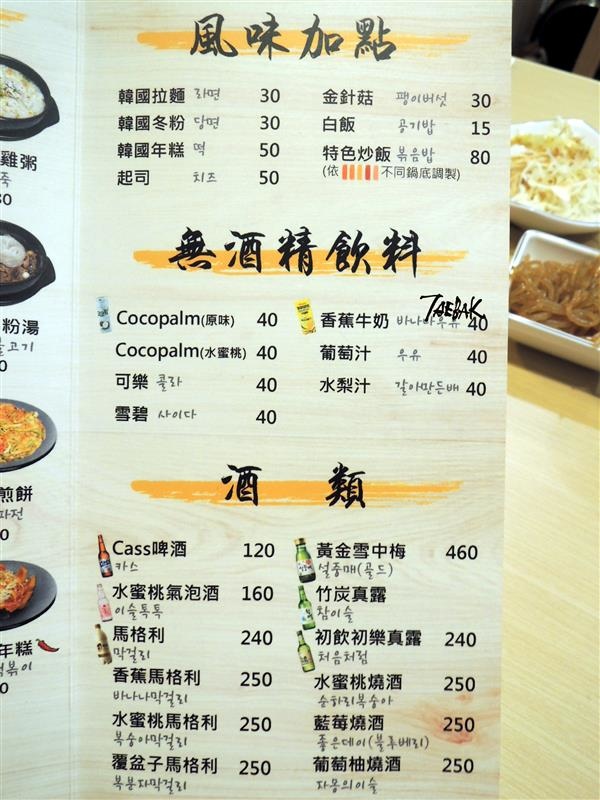 風味加點
韓國拉麵 라면 30
金針菇 팽이버섯 30
韓國冬粉 당면 30
白飯 공기밥 15
韓國年糕 떡 50
特色炒飯 볶음밥 80
起司 치즈 50
(依 不同鍋底調製)
雞粥
죽
粉湯
불고기
0
煎餅
파전
0
年糕
떡볶이
0
無酒精飲料
TAEBAK
Cocopalm(原味) 40
香蕉牛奶 바나나우유 40
Cocopalm(水蜜桃) 40
葡萄汁 우유 40
可樂 콜라 40
水梨汁 갈아만든배 40
雪碧 사이다 40
酒類
Cass啤酒 120
카스
黃金雪中梅 460
설중매(골드)
水蜜桃氣泡酒 160
이슬톡톡
竹炭真露
참이슬
馬格利 240
막걸리
初飲初樂真露 240
처음처럼
香蕉馬格利 250
바나나막걸리
水蜜桃燒酒 250
순하리복숭아
水蜜桃馬格利 250
복숭아막걸리
藍莓燒酒 250
좋은데이(블루베리)
覆盆子馬格利 250
복분자막걸리
葡萄柚燒酒 250
자몽의이슬